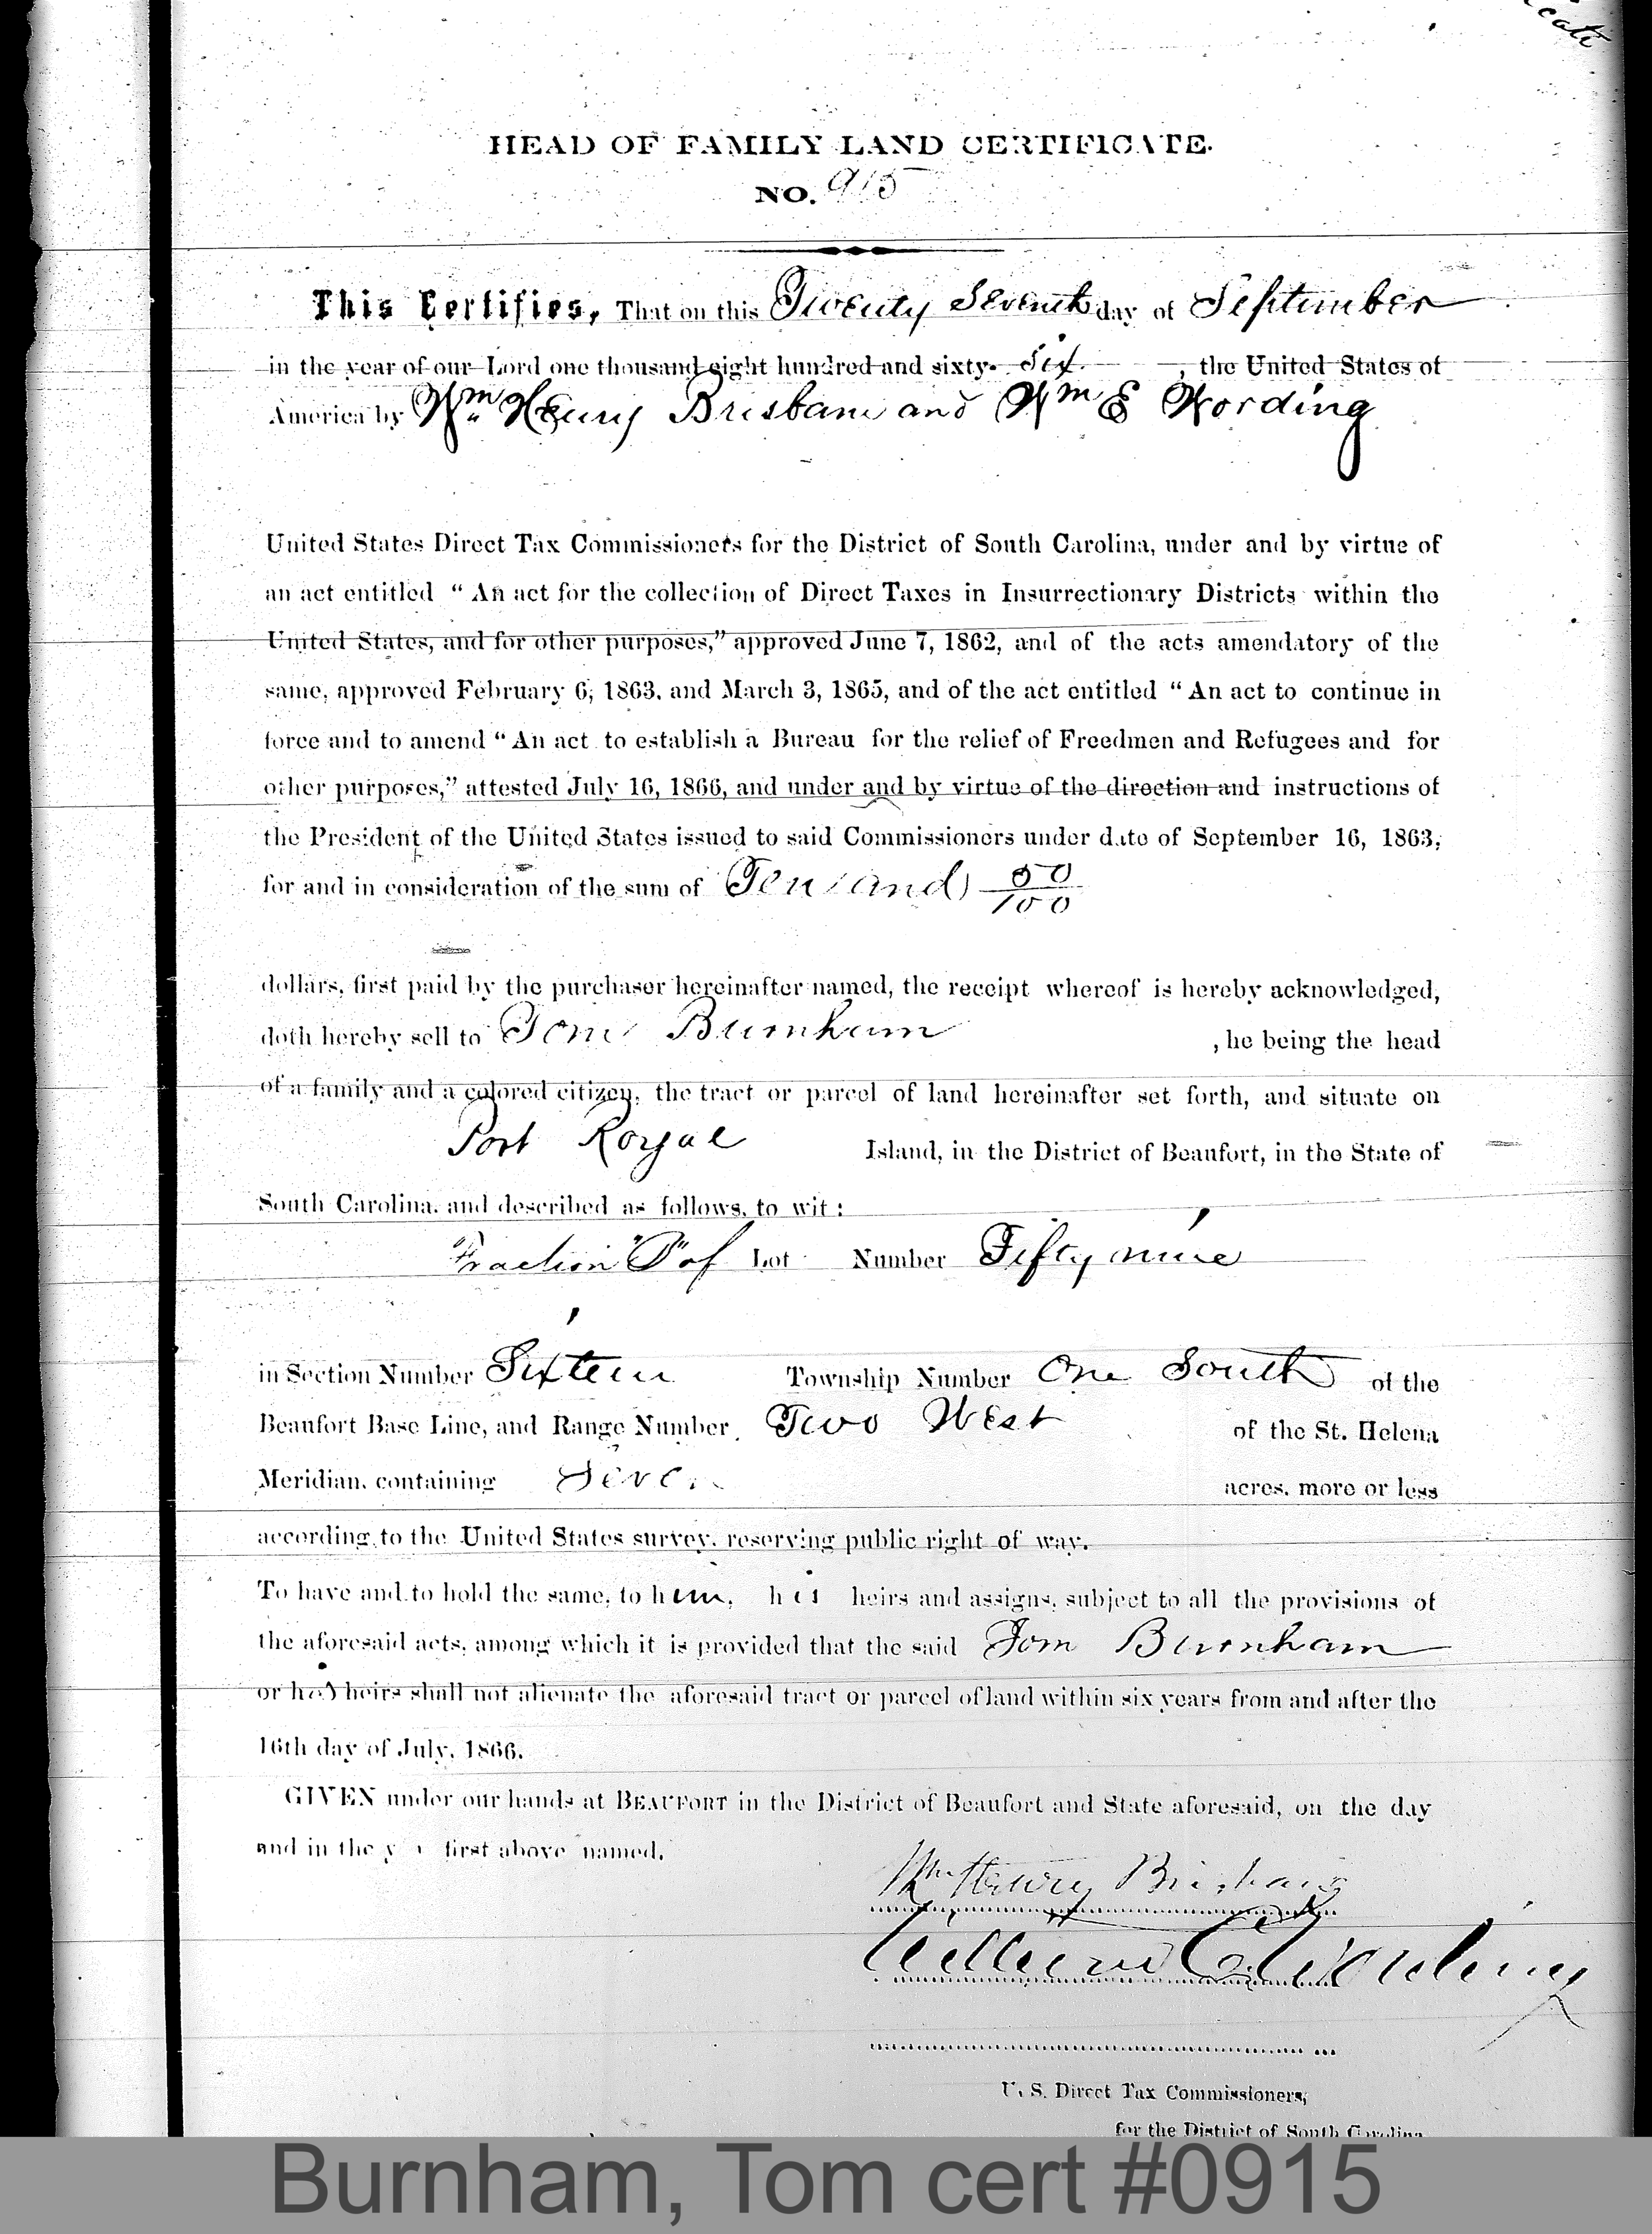 HEAD OF FAMILY LAND CERTIFICATE.
NO. 915
This Certifies, That on this Twenty Seventh day of September
in the year of our Lord one thousand eight hundred and sixty-Six, the United States of
America by Wm Henry Brisbane and Wm E Wording
United States Direct Tax Commissioners for the District of South Carolina, under and by virtue of
an act entitled “An act for the collection of Direct Taxes in Insurrectionary Districts within the
United States, and for other purposes,” approved June 7, 1862, and of the acts amendatory of the
same, approved February 6, 1863, and March 3, 1865, and of the act entitled “An act to continue in
force and to amend “An act to establish a Bureau for the relief of Freedmen and Refugees and for
other purposes,” attested July 16, 1866, and under and by virtue of the direction and instructions of
the President of the United States issued to said Commissioners under date of September 16, 1863,
for and in consideration of the sum of Ten and 50/100
dollars, first paid by the purchaser hereinafter named, the receipt whereof is hereby acknowledged,
doth hereby sell to Tom Burnham , he being the head
of a family and a colored citizen, the tract or parcel of land hereinafter set forth, and situate on
Port Royal Island, in the District of Beaufort, in the State of
South Carolina, and described as follows, to wit:
Fraction "P" of Lot Number Fifty nine
in Section Number Sixteen Township Number One South of the
Beaufort Base Line, and Range Number Two West of the St. Helena
Meridian, containing Seven acres, more or less
according to the United States survey, reserving public right of way.
To have and to hold the same, to him, his heirs and assigns, subject to all the provisions of
the aforesaid acts, among which it is provided that the said Tom Burnham
or his heirs shall not alienate the aforesaid tract or parcel of land within six years from and after the
16th day of July, 1866.
GIVEN under our hands at BEAUFORT in the District of Beaufort and State aforesaid, on the day
and in the year first above named.
Wm Henry Brisbane
William E Wording
U. S. Direct Tax Commissioners,
for the District of South Carolina
Burnham, Tom cert #0915